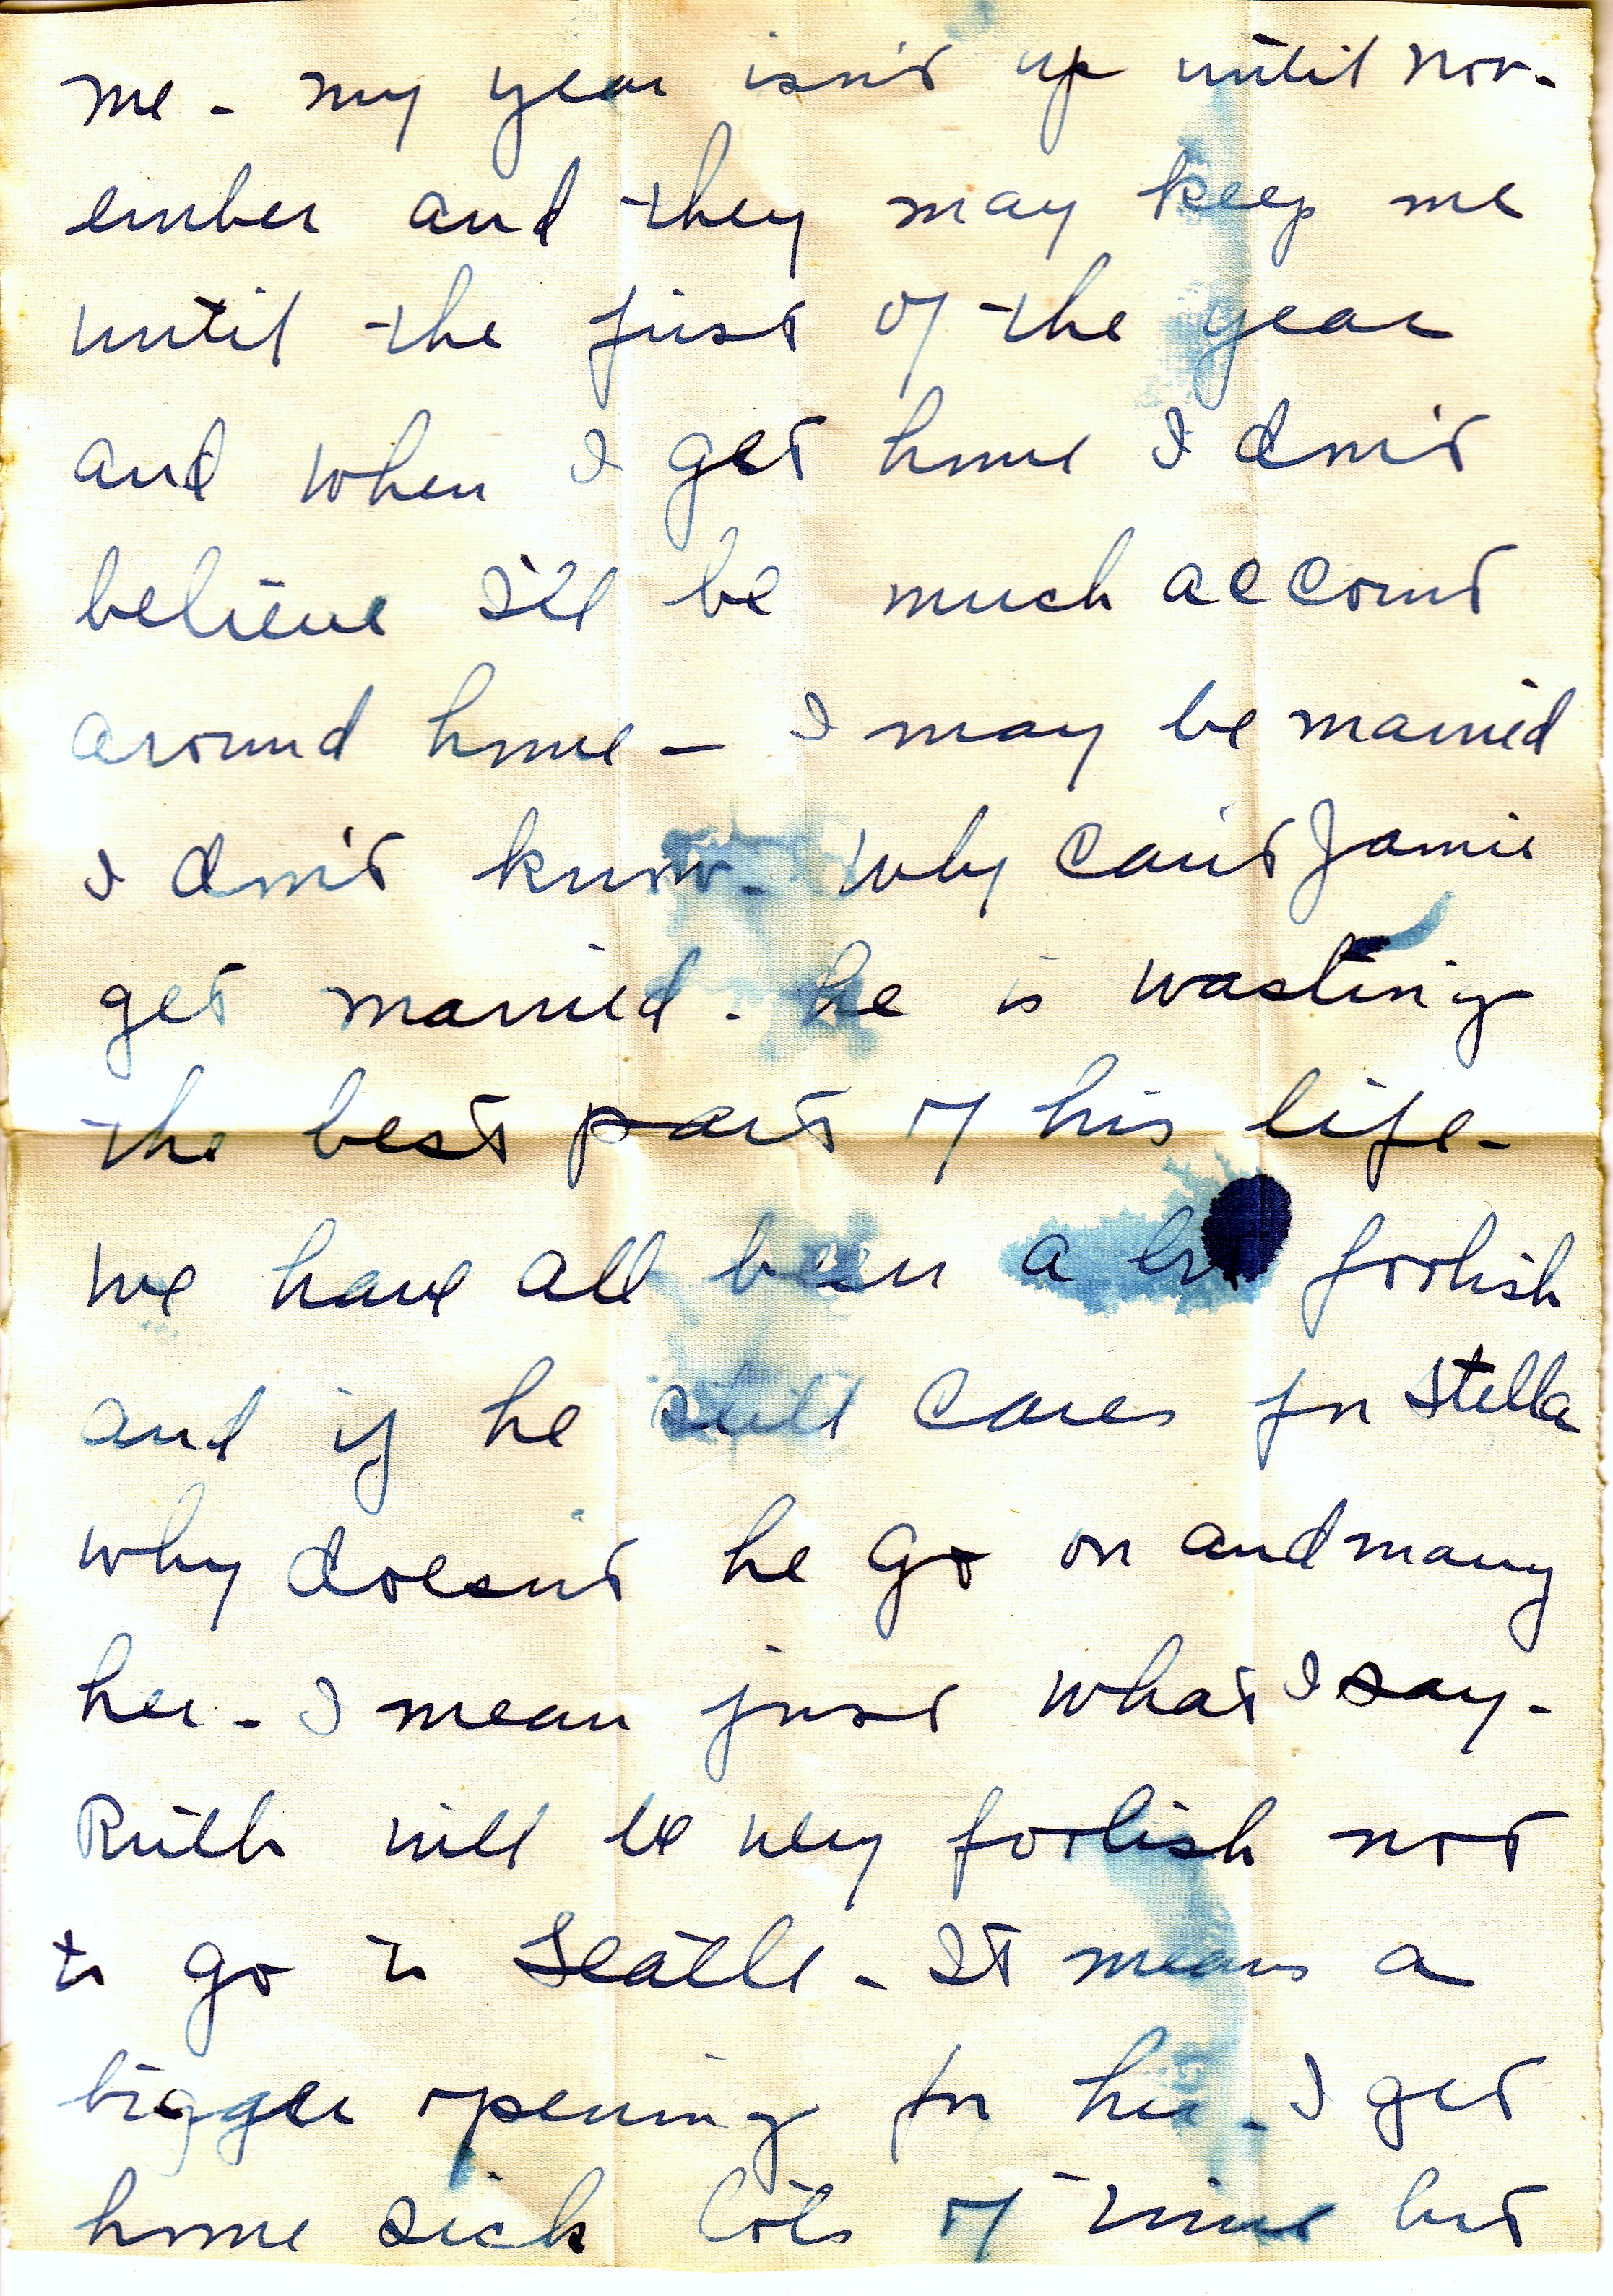 me - my year isn't up until Nov-
ember and they may keep me
until the first of the year
and when I get home I don't
believe I'll be much account
around home - I may be married
I don't know. Why can't Jamie
get married. he is wasting
the best part of his life -
we have all been a foolish
and if he still cares for Stella
why doesn't he go on and marry
her - I mean just what I say -
Ruth will be very foolish not
to go to Seattle - It means a
bigger opening for her - I get
home sick lots of time but